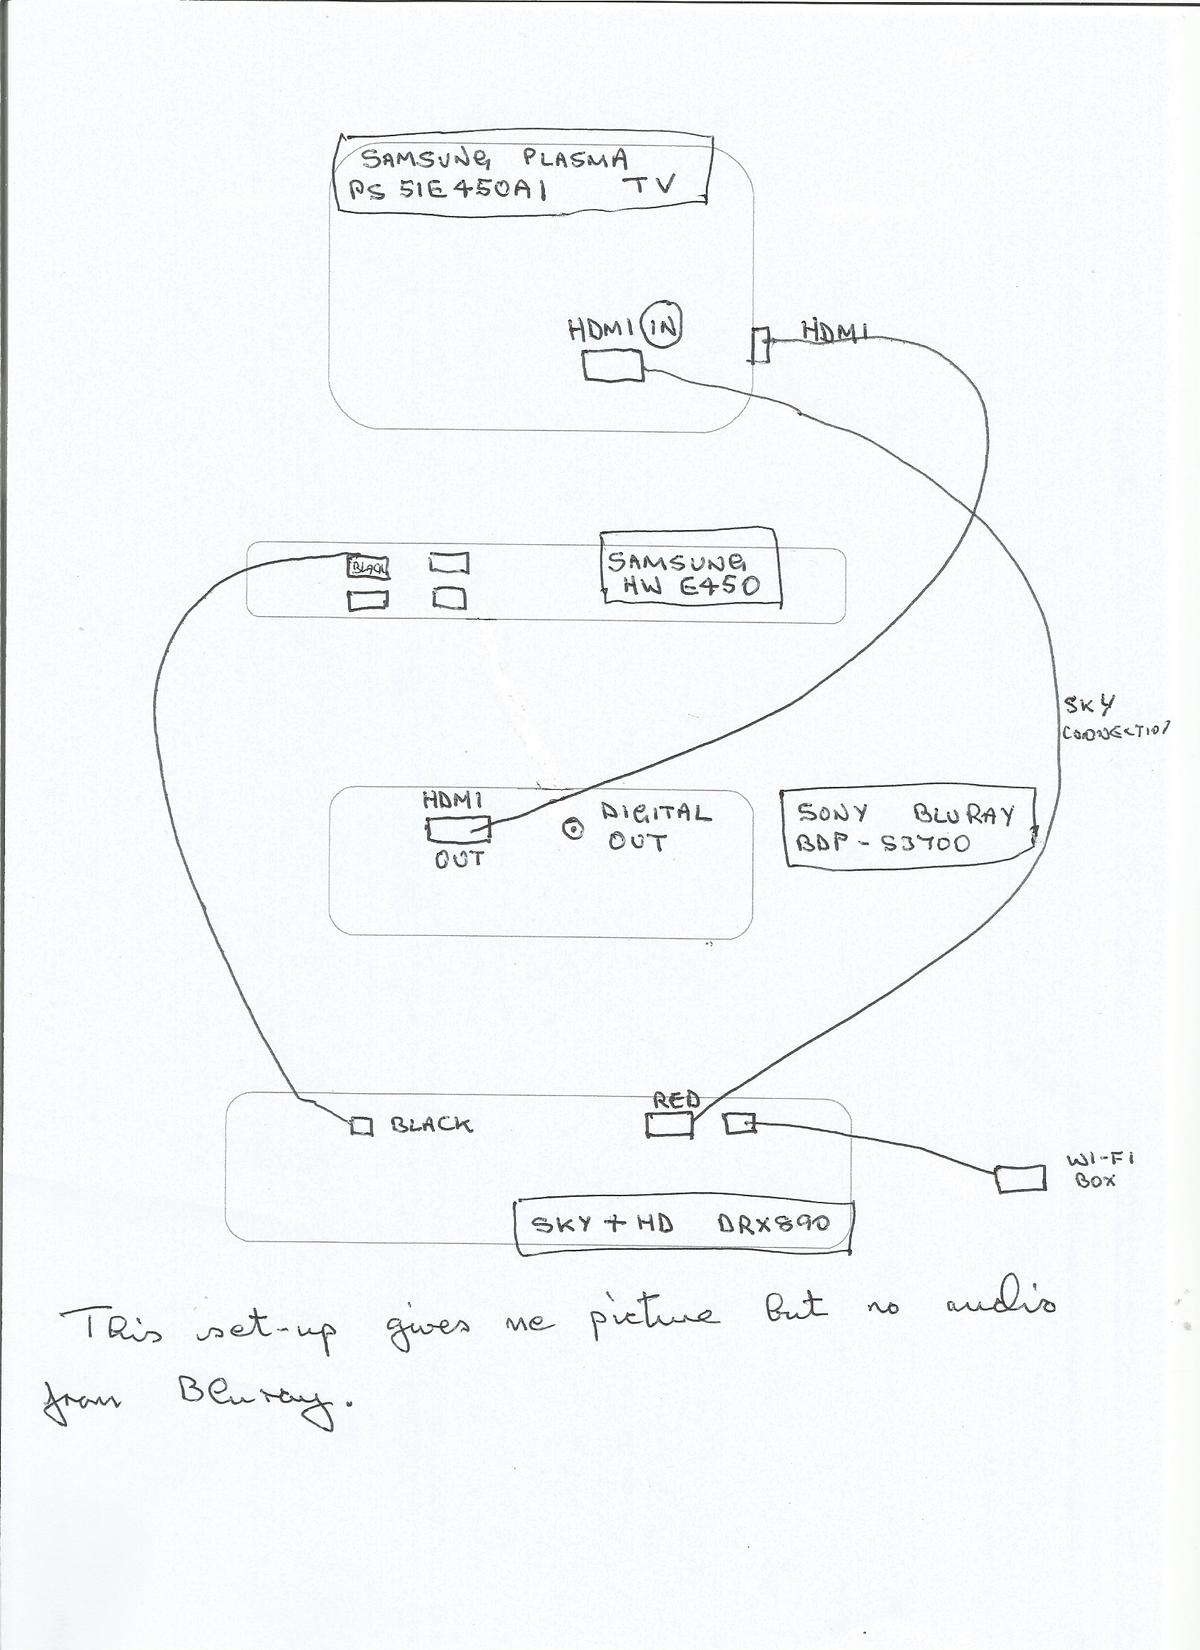 SAMSUNG PLASMA
PS 51E450A1 TV
HDMI IN
HDMI
BLACK
SAMSUNG
HW E450
SKY
CONNECTION
HDMI
OUT
DIGITAL
OUT
SONY BLURAY
BDP-S3700
BLACK
RED
WI-FI
BOX
SKY + HD DRX890
This set-up gives me picture but no audio
from Bluray.